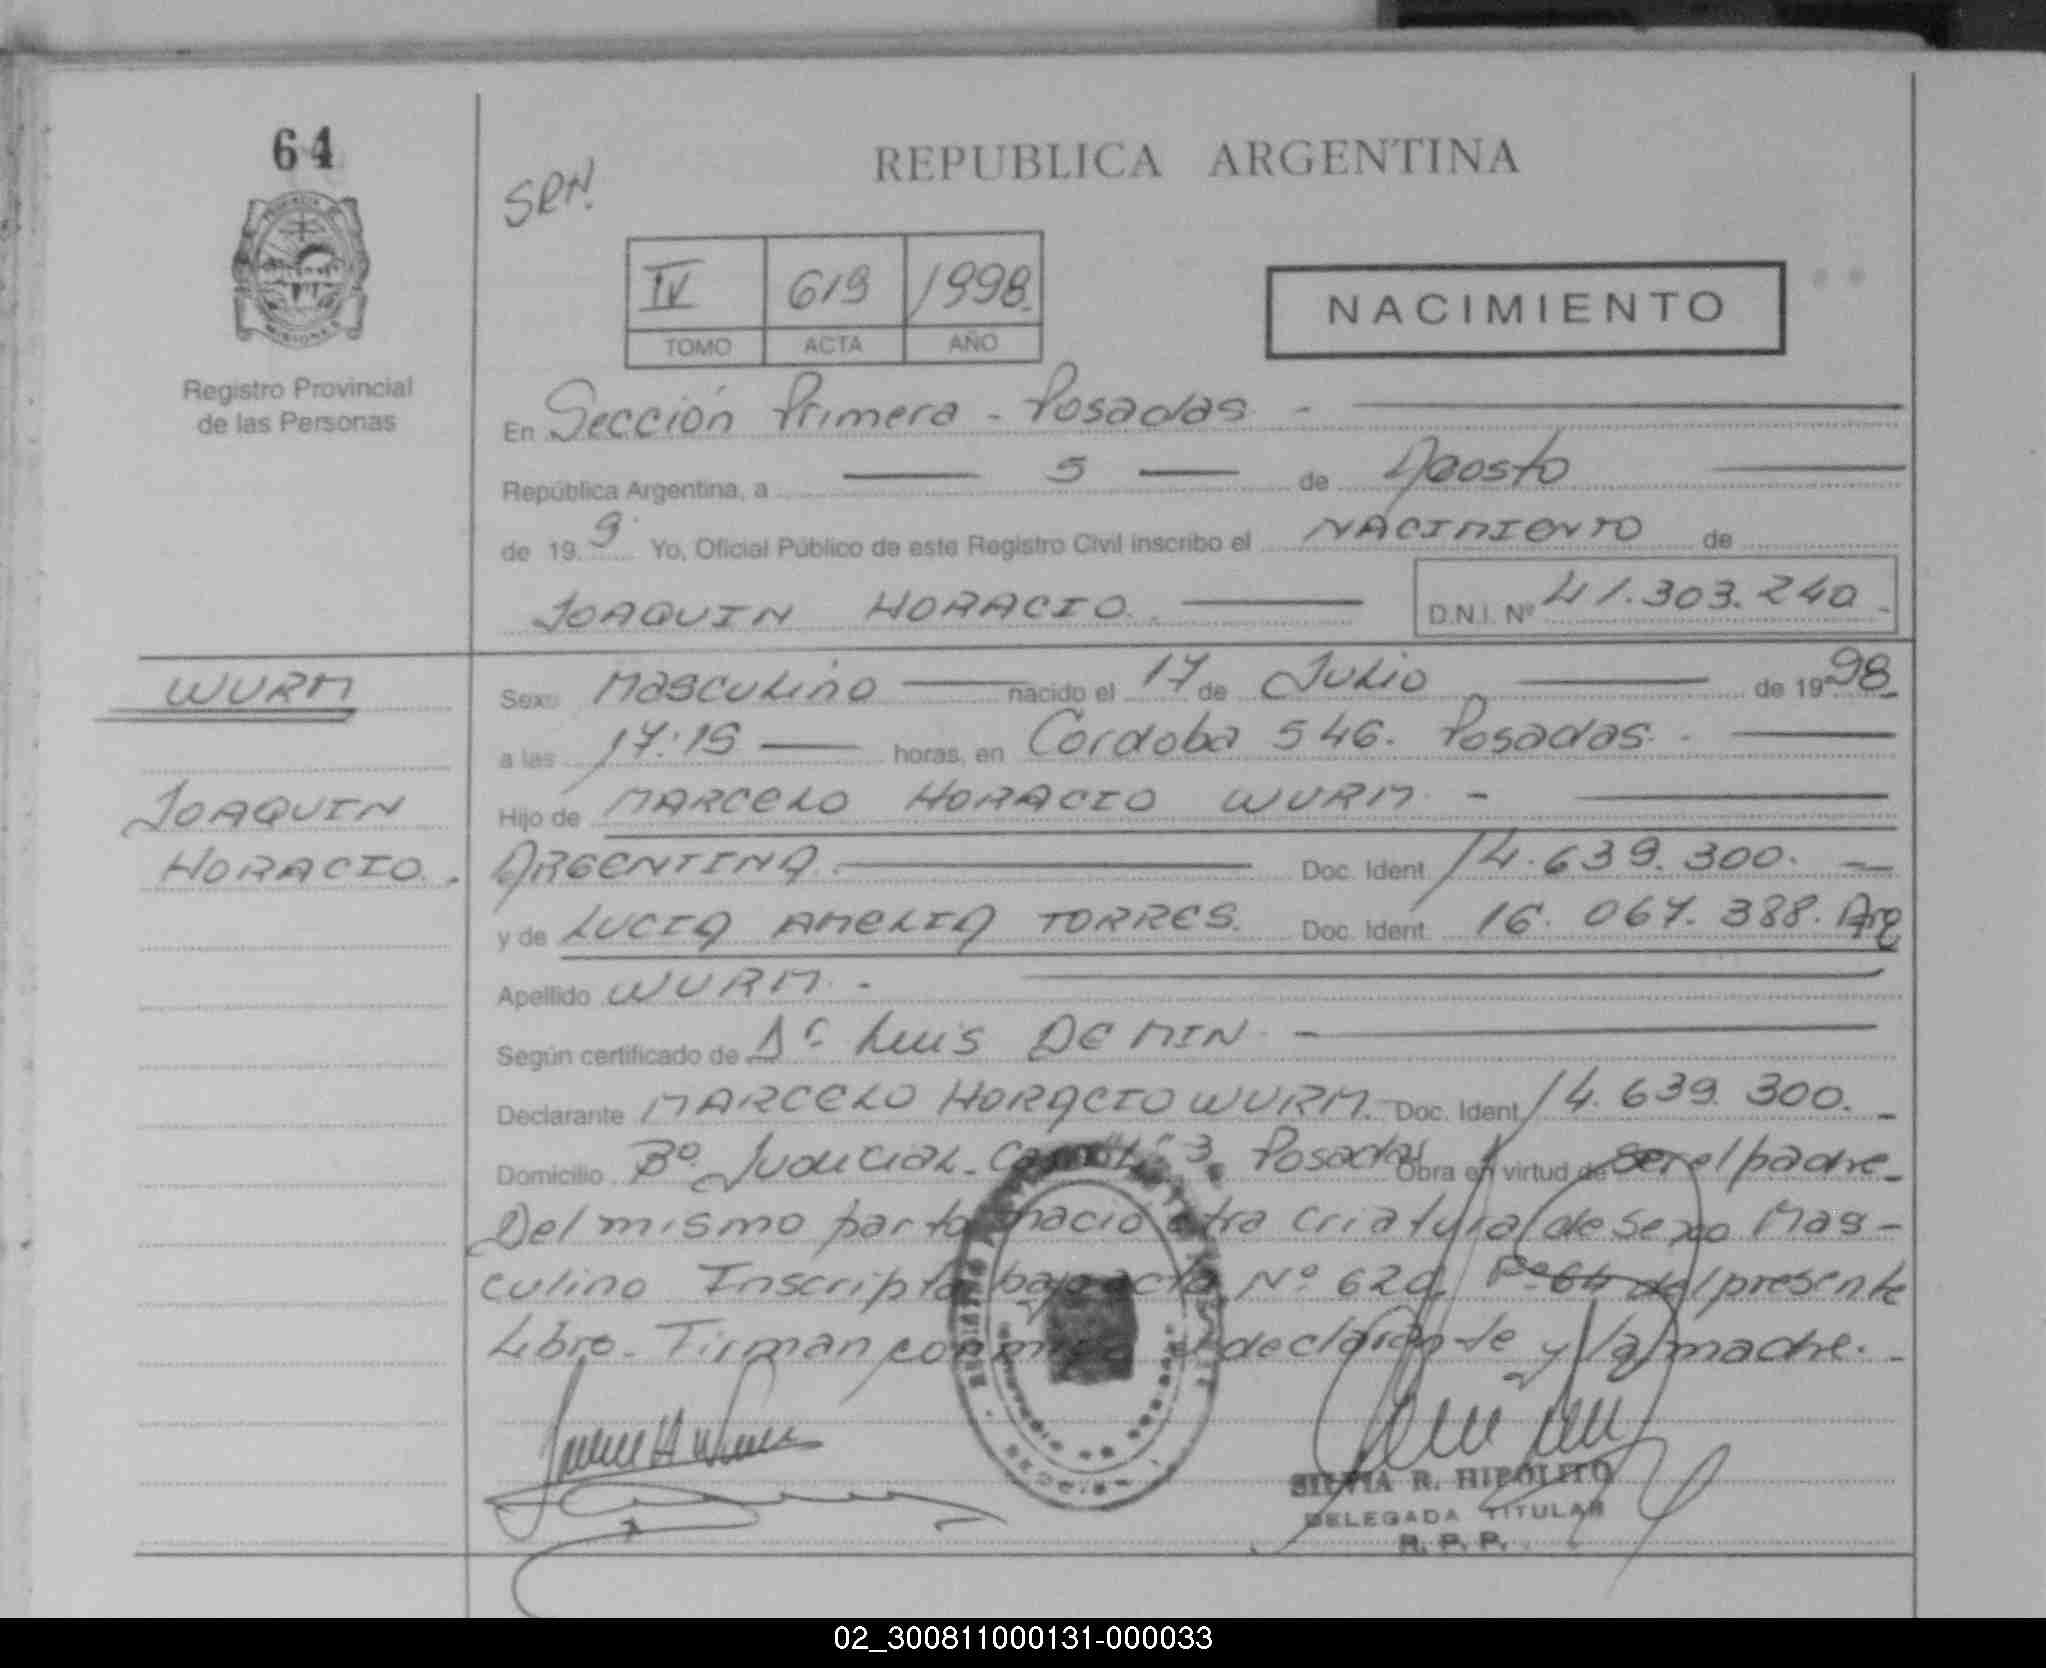 64
SRN.
REPUBLICA ARGENTINA
IV 619 1998.
TOMO ACTA AÑO
NACIMIENTO
Registro Provincial
de las Personas
En Sección Primera - Posadas -
República Argentina, a 5 de Agosto
de 19 9 Yo, Oficial Público de este Registro Civil inscribo el NACIMIENTO de
JOAQUIN HORACIO. D.N.I. Nº 41.303.240 -
WURM
Sexo Masculino nacido el 17 de Julio de 19 98
a las 17:15 horas, en Cordoba 546. Posadas. -
JOAQUIN
Hijo de MARCELO HORACIO WURM -
HORACIO.
ARGENTINA. Doc. Ident. 14.639.300. -
y de LUCIA AMELIA TORRES. Doc. Ident. 16.067.388. Arg
Apellido WURM. -
Según certificado de Dr Luis DE MIN -
Declarante MARCELO HORACIO WURM. - Doc. Ident. 14.639.300. -
Domicilio Bº Judicial - 3. Posadas Obra en virtud de ser el padre -
Del mismo parto nació otra criatura de sexo Mas-
culino Inscripta bajo acta Nº 620, Fº 64 del presente
Libro. Firman conmigo el declarante y la madre. -
SILVIA R. HIPOLITO
DELEGADA TITULAR
R. P. P.
02_300811000131-000033